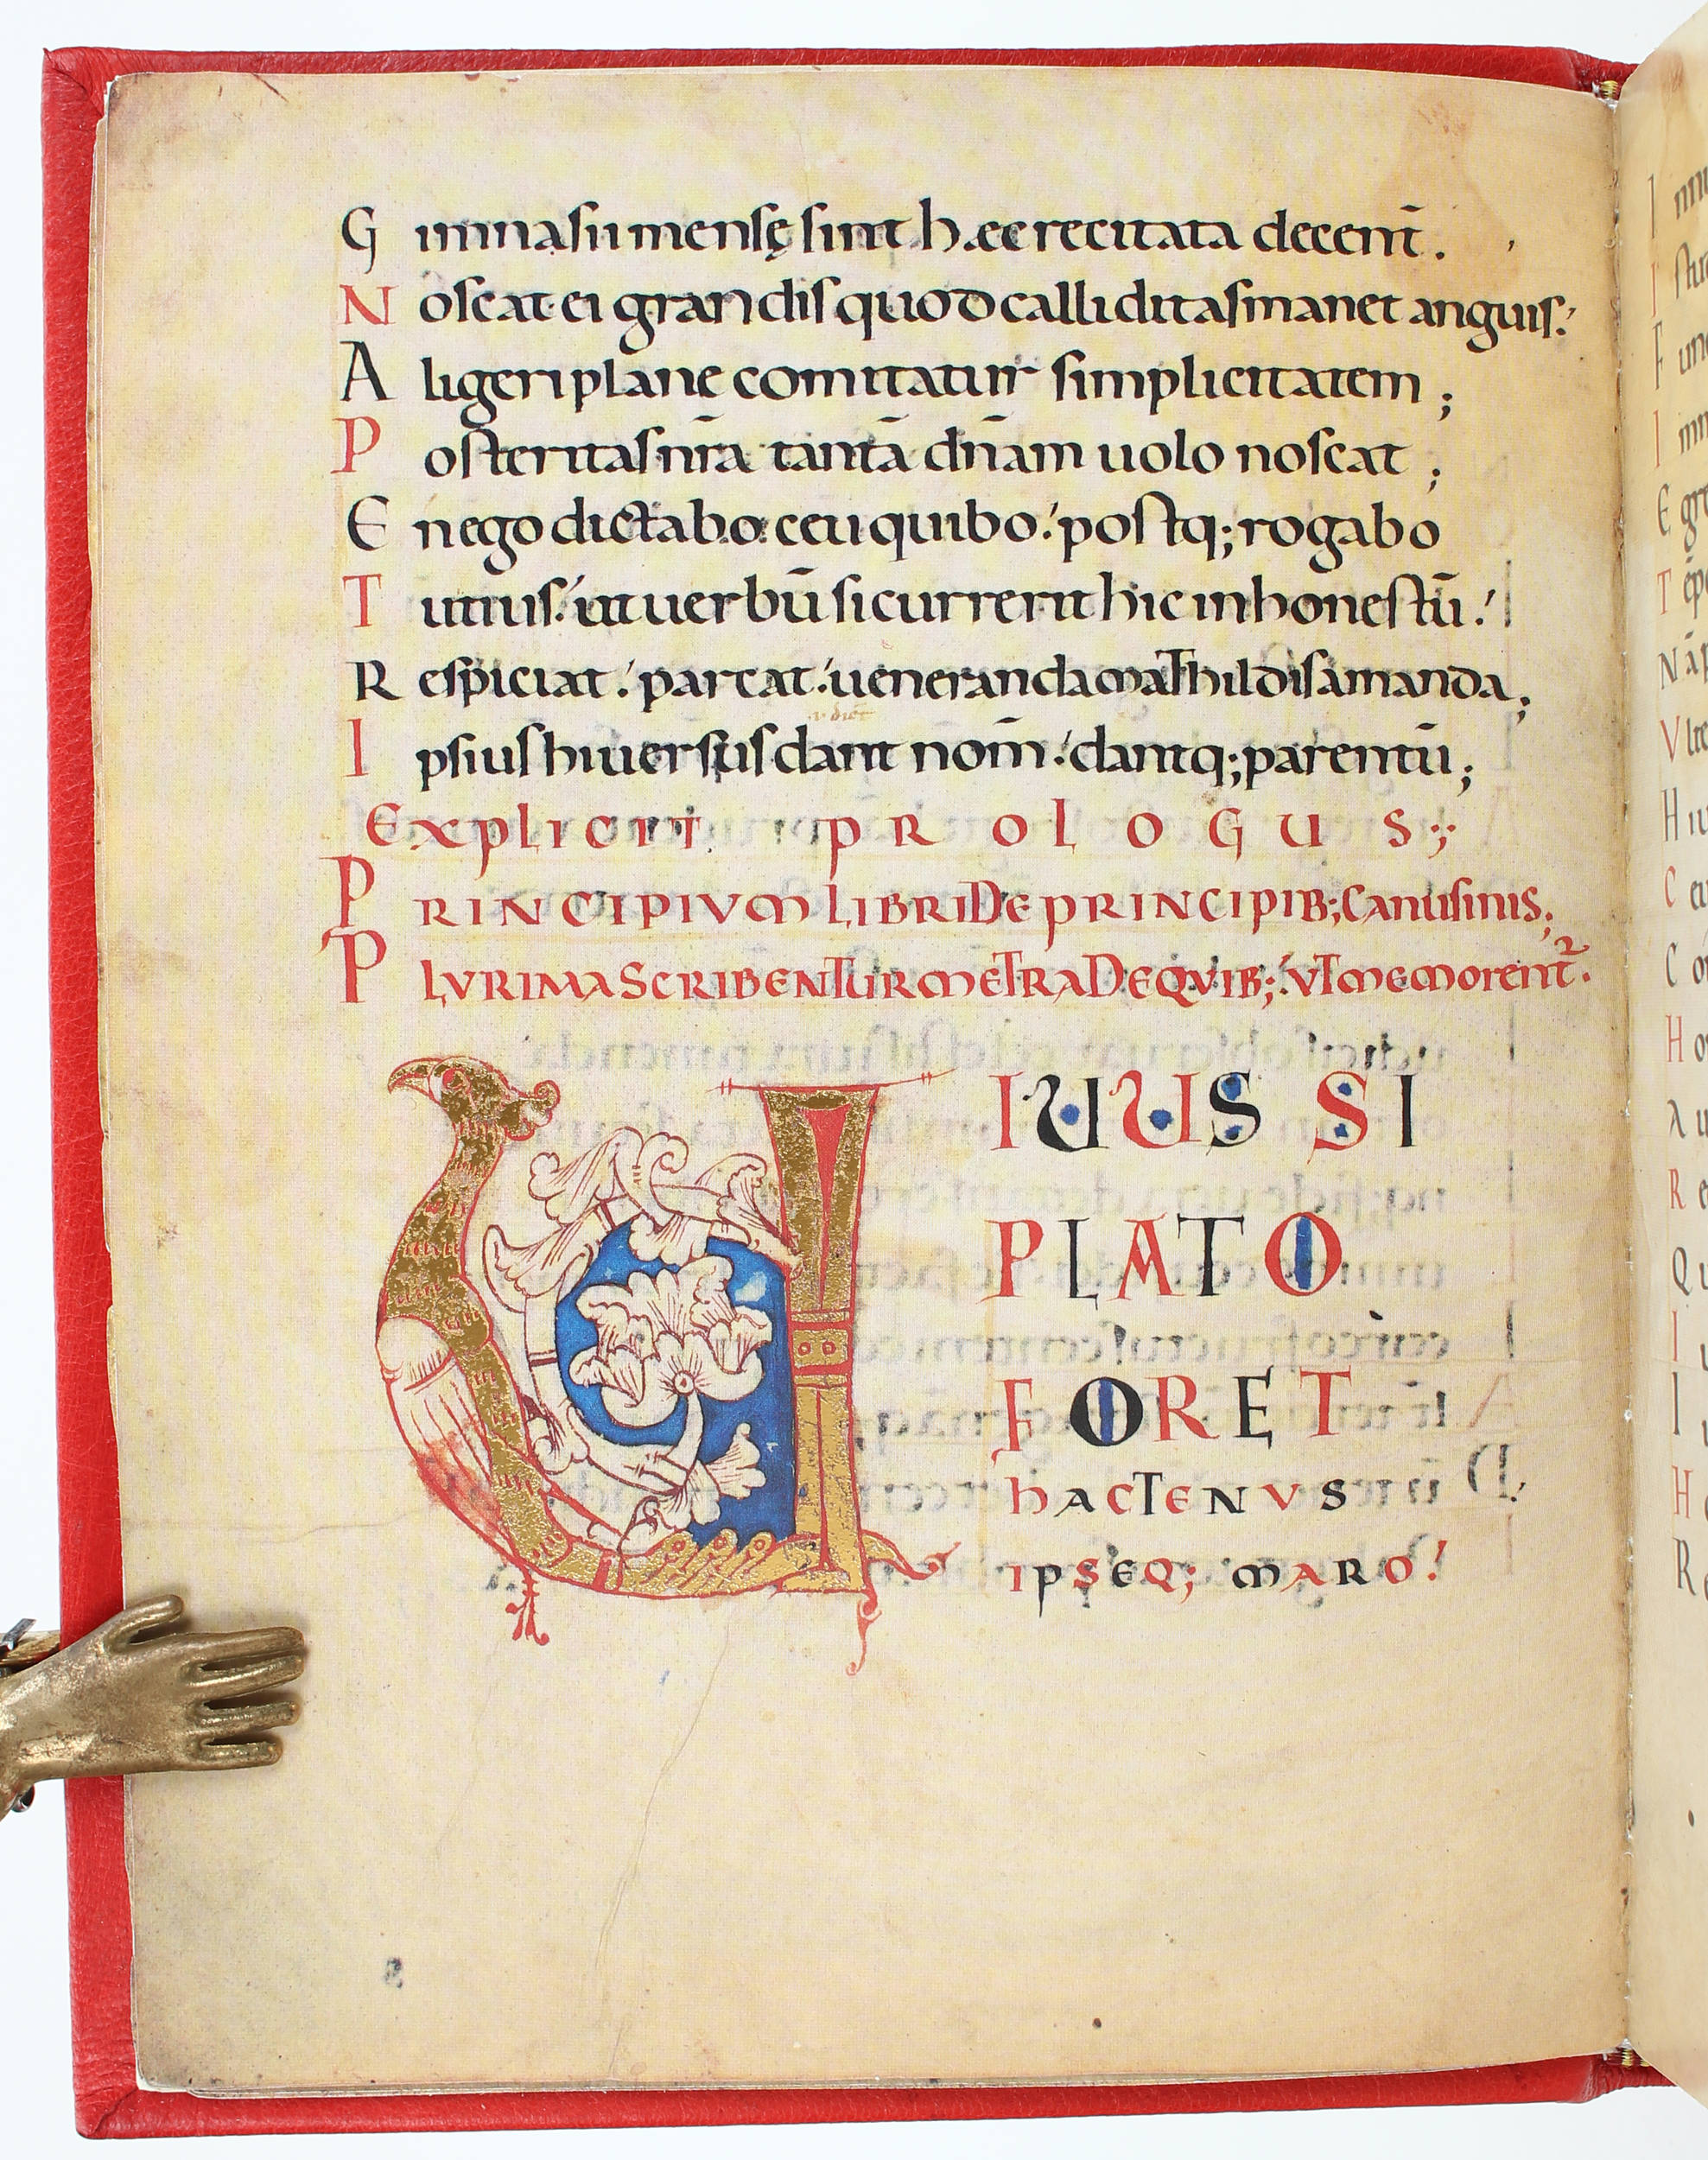 Gimnasii mensę sint hęc recitata decent̄.
Noscat ei grandis quod calliditas manet anguis:
Aligeri plane comitatur simplicitatem;
Posteritas nr̄a tantā dn̄am uolo noscat;
En ego dictabo ceu quibo: postq; rogabo
Tutius: ut uerbū si currerit hic inhonestū:
Respiciat: parcat: ueneranda Mathildis amanda;
Ipsius hi uersus dant nom̄: dantq; parentū;
Explicit PROLOGUS;
PRINCIPIVM LIBRI DE PRINCIPIB; Canusinis;
PLVRIMA SCRIBENTUR METRA DE QVIB; VT MEMORent̄.
UIUUS SI
PLATO
FORET
hACTENVS
IPSEQ; MARO!